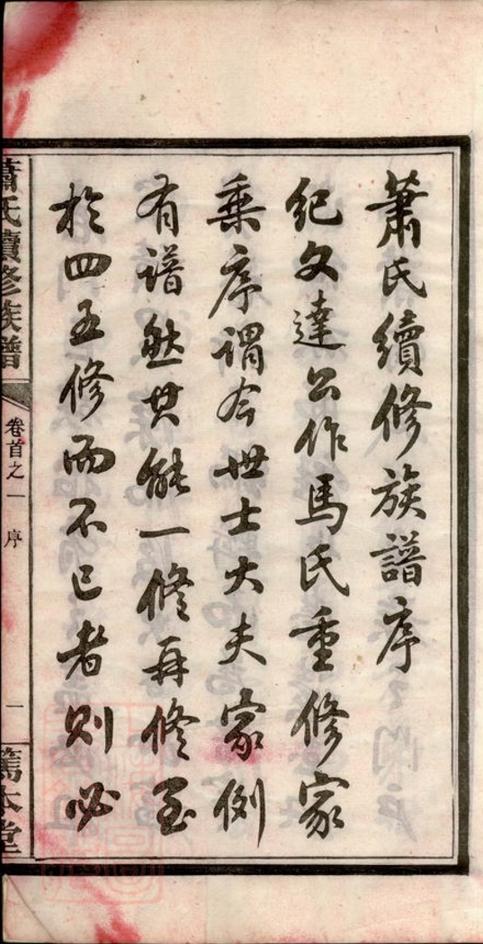 蕭氏續修族譜序
紀文達公作馬氏重修家
乘序謂今世士大夫家例
有譜然其能一修再修至
於四五修而不已者則必
蕭氏續修族譜
卷首之一 序
一
篤本堂